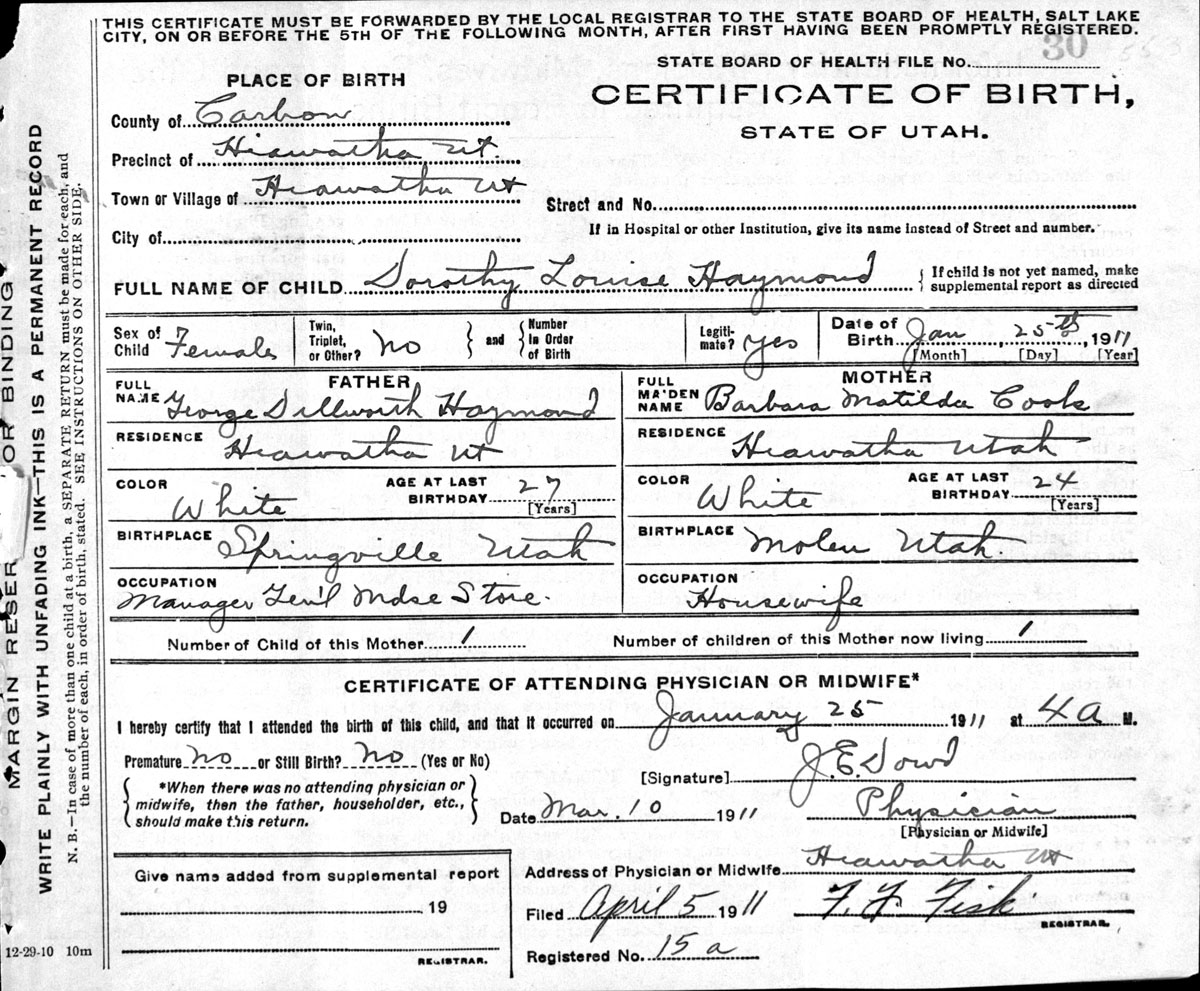 THIS CERTIFICATE MUST BE FORWARDED BY THE LOCAL REGISTRAR TO THE STATE BOARD OF HEALTH, SALT LAKE
CITY, ON OR BEFORE THE 5TH OF THE FOLLOWING MONTH, AFTER FIRST HAVING BEEN PROMPTLY REGISTERED.
30
STATE BOARD OF HEALTH FILE No.
PLACE OF BIRTH
CERTIFICATE OF BIRTH,
STATE OF UTAH.
County of Carbon
Precinct of Hiawatha Ut.
Town or Village of Hiawatha Ut
Street and No.
City of
If in Hospital or other Institution, give its name instead of Street and number.
FULL NAME OF CHILD Dorothy Louise Haymond
If child is not yet named, make
supplemental report as directed
Sex of Child Female
Twin, Triplet, or Other? No
and
Number in Order of Birth
Legiti-mate? Yes
Date of Birth Jan, 25th, 1911
[Month] [Day] [Year]
FATHER
FULL NAME George Dillworth Haymond
RESIDENCE Hiawatha Ut
COLOR White
AGE AT LAST BIRTHDAY 27
[Years]
BIRTHPLACE Springville Utah
OCCUPATION
Manager Gen'l Mdse Store.
MOTHER
FULL MAIDEN NAME Barbara Matilda Cook
RESIDENCE Hiawatha Utah
COLOR White
AGE AT LAST BIRTHDAY 24
[Years]
BIRTHPLACE Molen Utah.
OCCUPATION
Housewife
Number of Child of this Mother 1
Number of children of this Mother now living 1
CERTIFICATE OF ATTENDING PHYSICIAN OR MIDWIFE*
I hereby certify that I attended the birth of this child, and that it occurred on January 25 1911 at 4 a M.
Premature No or Still Birth? No (Yes or No)
*When there was no attending physician or
midwife, then the father, householder, etc.,
should make this return.
[Signature] J.E. Dowd
Date Mar. 10 1911
Physician
[Physician or Midwife]
Give name added from supplemental report
19
REGISTRAR.
Address of Physician or Midwife Hiawatha Ut
Filed April 5 1911
F. F. Fisk
REGISTRAR.
Registered No. 15 a
12-29-10 10m
MARGIN RESER OR BINDING
WRITE PLAINLY WITH UNFADING INK—THIS IS A PERMANENT RECORD
N. B.—In case of more than one child at a birth, a SEPARATE RETURN must be made for each, and
the number of each, in order of birth, stated. SEE INSTRUCTIONS ON OTHER SIDE.